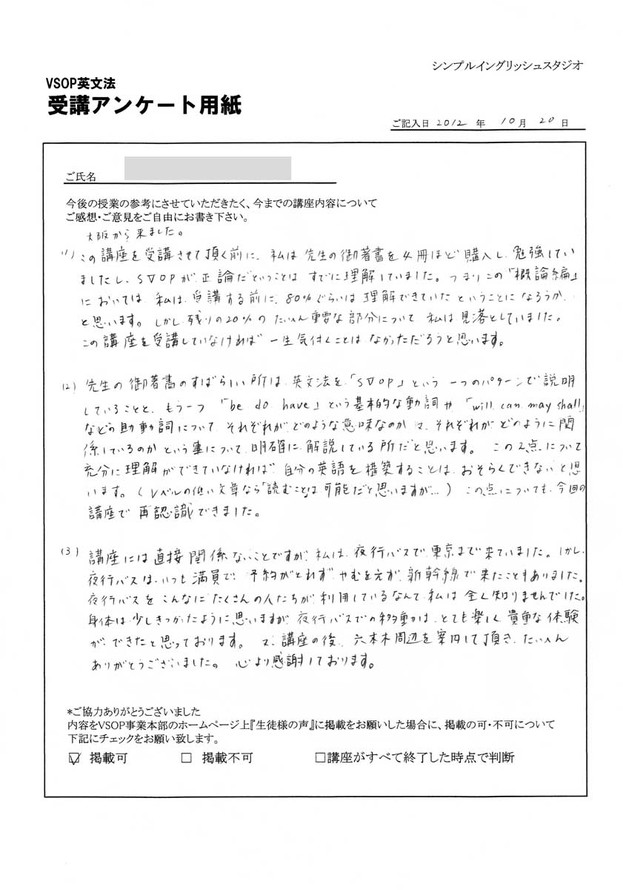 シンプルイングリッシュスタジオ
VSOP英文法
受講アンケート用紙
ご記入日 2012 年 10 月 20 日
ご氏名
今後の授業の参考にさせていただきたく、今までの講座内容について
ご感想・ご意見をご自由にお書き下さい。
大阪から来ました。
(1) この講座を受講させて頂く前に、私は先生の御著書を4冊ほど購入し、勉強してい
ましたし、SVOPが正論だということはすでに理解していました。つまりこの「概論編」
においては 私は、受講する前に、80%ぐらいは理解できていたということになろうか、
と思います。しかし残りの20%のたいへん重要な部分について 私は見落としていました。
この講座を受講していなければ 一生気付くことは なかっただろうと思います。
(2) 先生の御著書のすばらしい所は、英文法を「SVOP」という 一つのパターンで説明
していることと、もう一つ 「be do have」という基本的な動詞や 「will can may shall」
などの助動詞について それぞれが どのような意味なのか、それぞれが どのように関
係しているのか という事について 明確に 解説している所だと思います。 この2点について
充分に理解ができていなければ 自分の英語を構築することは、おそらくできないと思
います。(レベルの低い文章なら「読むことは可能だと思いますが…) この点についても、今回の
講座で 再認識できました。
(3) 講座には直接関係ないことですが、私は、夜行バスで東京まで来ていました。しかし、
夜行バスは、いつも満員で、予約がとれず、やむをえず、新幹線で来たこともありました。
夜行バスを こんなに たくさんの人たちが 利用しているなんて 私は 全く知りませんでした。
身体は、少しきつかったように思いますが 夜行バスでの移動は、とても楽しく 貴重な体験
が、できたと思っております。 で、講座の後、六本木周辺を案内して頂き、たいへん
ありがとうございました。 心より感謝しております。
*ご協力ありがとうございました
内容をVSOP事業本部のホームページ上『生徒様の声』に掲載をお願いした場合に、掲載の可・不可について
下記にチェックをお願い致します。
☑ 掲載可 □ 掲載不可 □講座がすべて終了した時点で判断